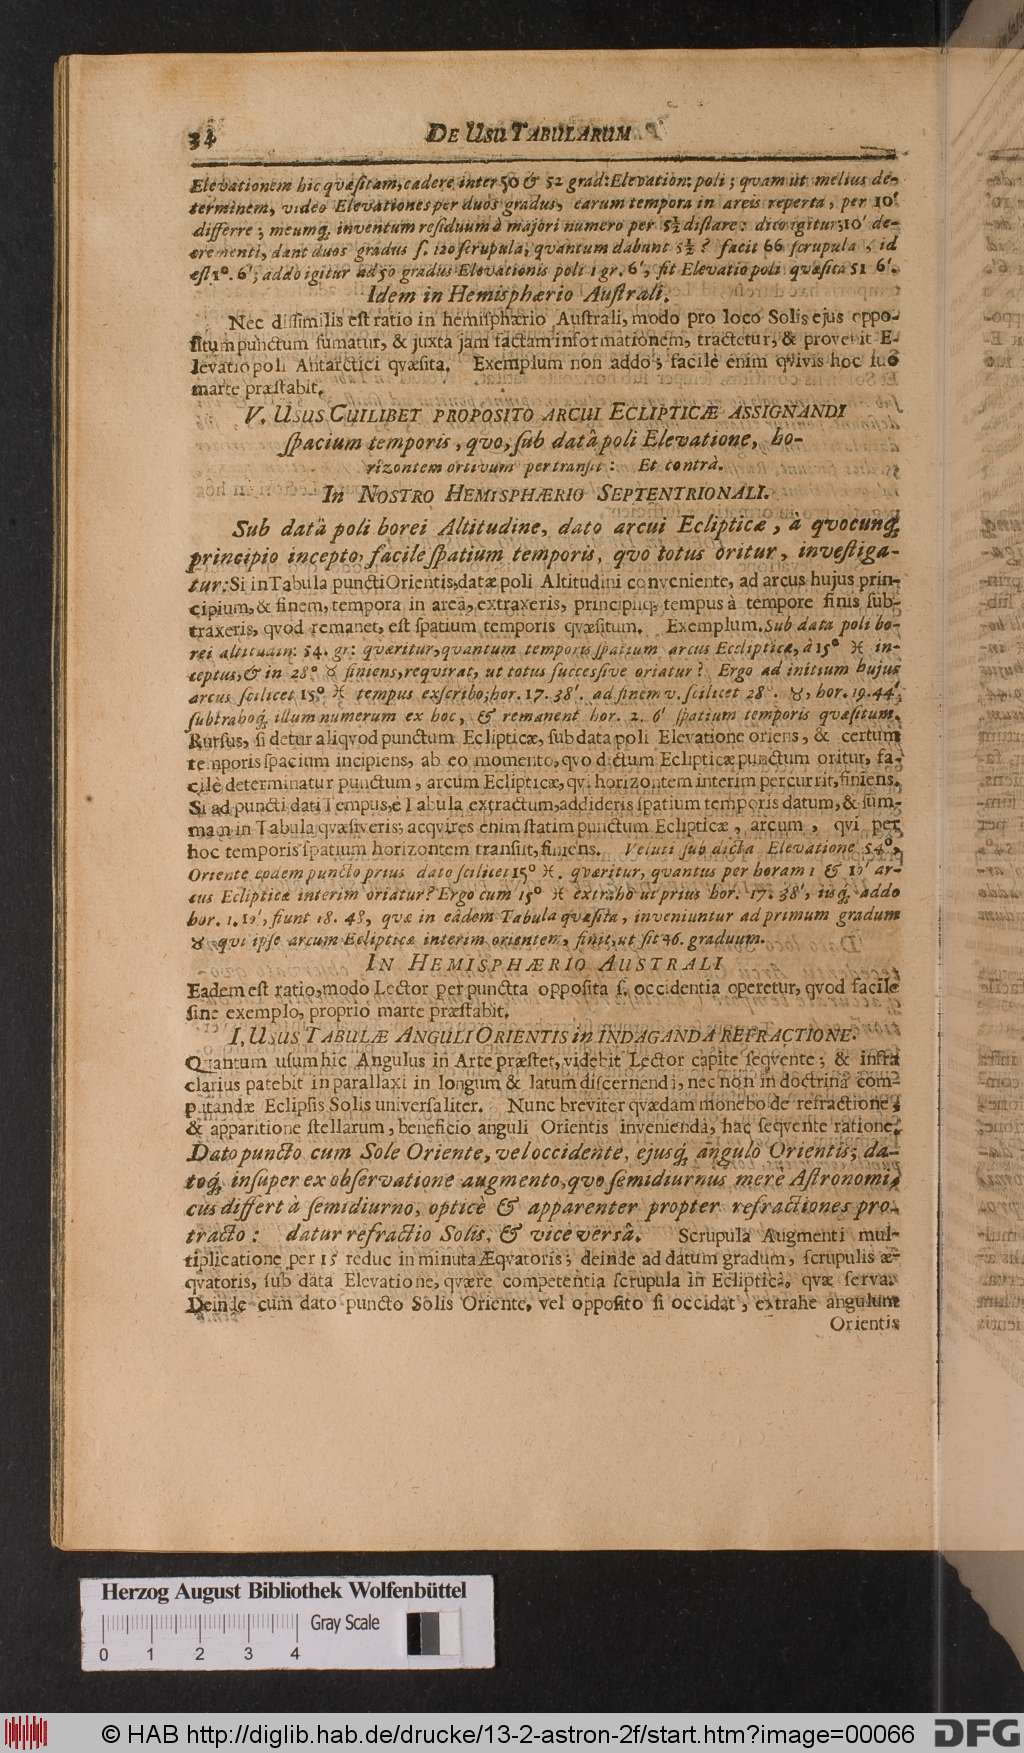 34 DE USU TABULARUM
Elevationem hic qvæsitam, cadere inter 50 & 52 grad: Elevation: poli; qvam ut melius de-
terminem, video Elevationes per duos gradus, earum tempora in areis reperta, per 10'
differre; meumq́, inventum residuum à majori numero per 5½ distare: dico igitur; 10' de-
crementi, dant duos gradus s. 120 scrupula, qvantum dabunt 5½? facit 66 scrupula, id
est 1°. 6'; addo igitur ad 50 gradus Elevationis poli 1 gr. 6', fit Elevatio poli qvæsita 51 6'.
Idem in Hemisphærio Australi.
Nec dissimilis est ratio in hemisphærio Australi, modo pro loco Solis ejus oppo-
situm punctum sumatur, & juxta jam factam informationem, tractetur, & provenit E-
levatio poli Antarctici qvæsita. Exemplum non addo; facilè enim qvivis hoc suo
marte præstabit.
V. USUS CUILIBET PROPOSITO ARCUI ECLIPTICÆ ASSIGNANDI
spacium temporis, qvo, sub datâ poli Elevatione, ho-
rizontem ortivum pertransit: Et contrà.
IN NOSTRO HEMISPHÆRIO SEPTENTRIONALI.
Sub datâ poli borei Altitudine, dato arcui Eclipticæ, à qvocunq́
principio incepto, facile spatium temporis, qvo totus oritur, investiga-
tur: Si in Tabula puncti Orientis, datæ poli Altitudini conveniente, ad arcus hujus prin-
cipium, & finem, tempora in areâ, extraxeris, principiiq; tempus à tempore finis sub-
traxeris, qvod remanet, est spatium temporis qvæsitum. Exemplum. Sub data poli bo-
rei altitudin: 54. gr: qværitur, qvantum temporis spatium arcus Eccliptica, à 15° ♓ in-
ceptus, & in 28° ♉ finiens, reqvirat, ut totus successive oriatur? Ergo ad initium hujus
arcus scilicet 15° ♓ tempus exscribo; hor. 17. 38'. ad finem v. scilicet 28°. ♉, hor. 19. 44',
subtrahoq́, illum numerum ex hoc, & remanent hor. 2. 6' spatium temporis qvæsitum.
Rursus, si detur aliqvod punctum Eclipticæ, sub data poli Elevatione oriens, & certum
temporis spacium incipiens, ab eo momento, qvo dictum Eclipticæ punctum oritur, fa-
cilè determinatur punctum, arcum Eclipticæ, qvi horizontem interim percurrit, finiens.
Si ad puncti dati Tempus, è Tabula extractum, addideris spatium temporis datum, & sum-
mam in Tabula qvæsiveris; acqvires enim statim punctum Eclipticæ, arcum, qvi per
hoc temporis spatium horizontem transiit, finiens. Veluti sub dicta Elevatione 54°,
Oriente eodem puncto prius dato scilicet 15° ♓. qværitur, qvantus per horam 1 & 10' ar-
cus Eclipticæ interim oriatur? Ergo cum 15° ♓ extraho ut prius hor. 17. 38', iisq́, addo
hor. 1. 10', fiunt 18. 48, quæ in eâdem Tabula qvæsita, inveniuntur ad primum gradum
♉, qvi ipse arcum Eclipticæ interim orientem, finit, ut sit 46. graduum.
IN HEMISPHÆRIO AUSTRALI
Eadem est ratio, modo Lector per punctta opposita s. occidentia operetur, qvod facile
sine exemplo, proprio marte præstabit.
I. USUS TABULÆ ANGULI ORIENTIS in INDAGANDA REFRACTIONE.
Quantum usum hic Angulus in Arte præstet, videbit Lector capite seqvente; & infra
clarius patebit in parallaxi in longum & latum discernendi, nec non in doctrina com-
putandæ Eclipsis Solis universaliter. Nunc breviter qvædam monebo de refractione,
& apparitione stellarum, beneficio anguli Orientis invenienda, hac seqvente ratione.
Dato puncto cum Sole Oriente, vel occidente, ejusq́, angulo Orientis; da-
toq́, insuper ex observatione augmento, qvo semidiurnus merè Astronomi-
cus differt à semidiurno, opticè & apparenter propter refractiones pro-
tracto: datur refractio Solis, & vice versâ. Scrupula Augmenti mul-
tiplicatione per 15 reduc in minuta Æqvatoris; deinde ad datum gradum, scrupulis æ-
qvatoris, sub data Elevatione, qvære competentia scrupula in Eclipticâ, qvæ serva.
Deinde cum dato puncto Solis Oriente, vel opposito si occidat, extrahe angulum
Orientis
Herzog August Bibliothek Wolfenbüttel
Gray Scale
0 1 2 3 4
© HAB http://diglib.hab.de/drucke/13-2-astron-2f/start.htm?image=00066
DFG